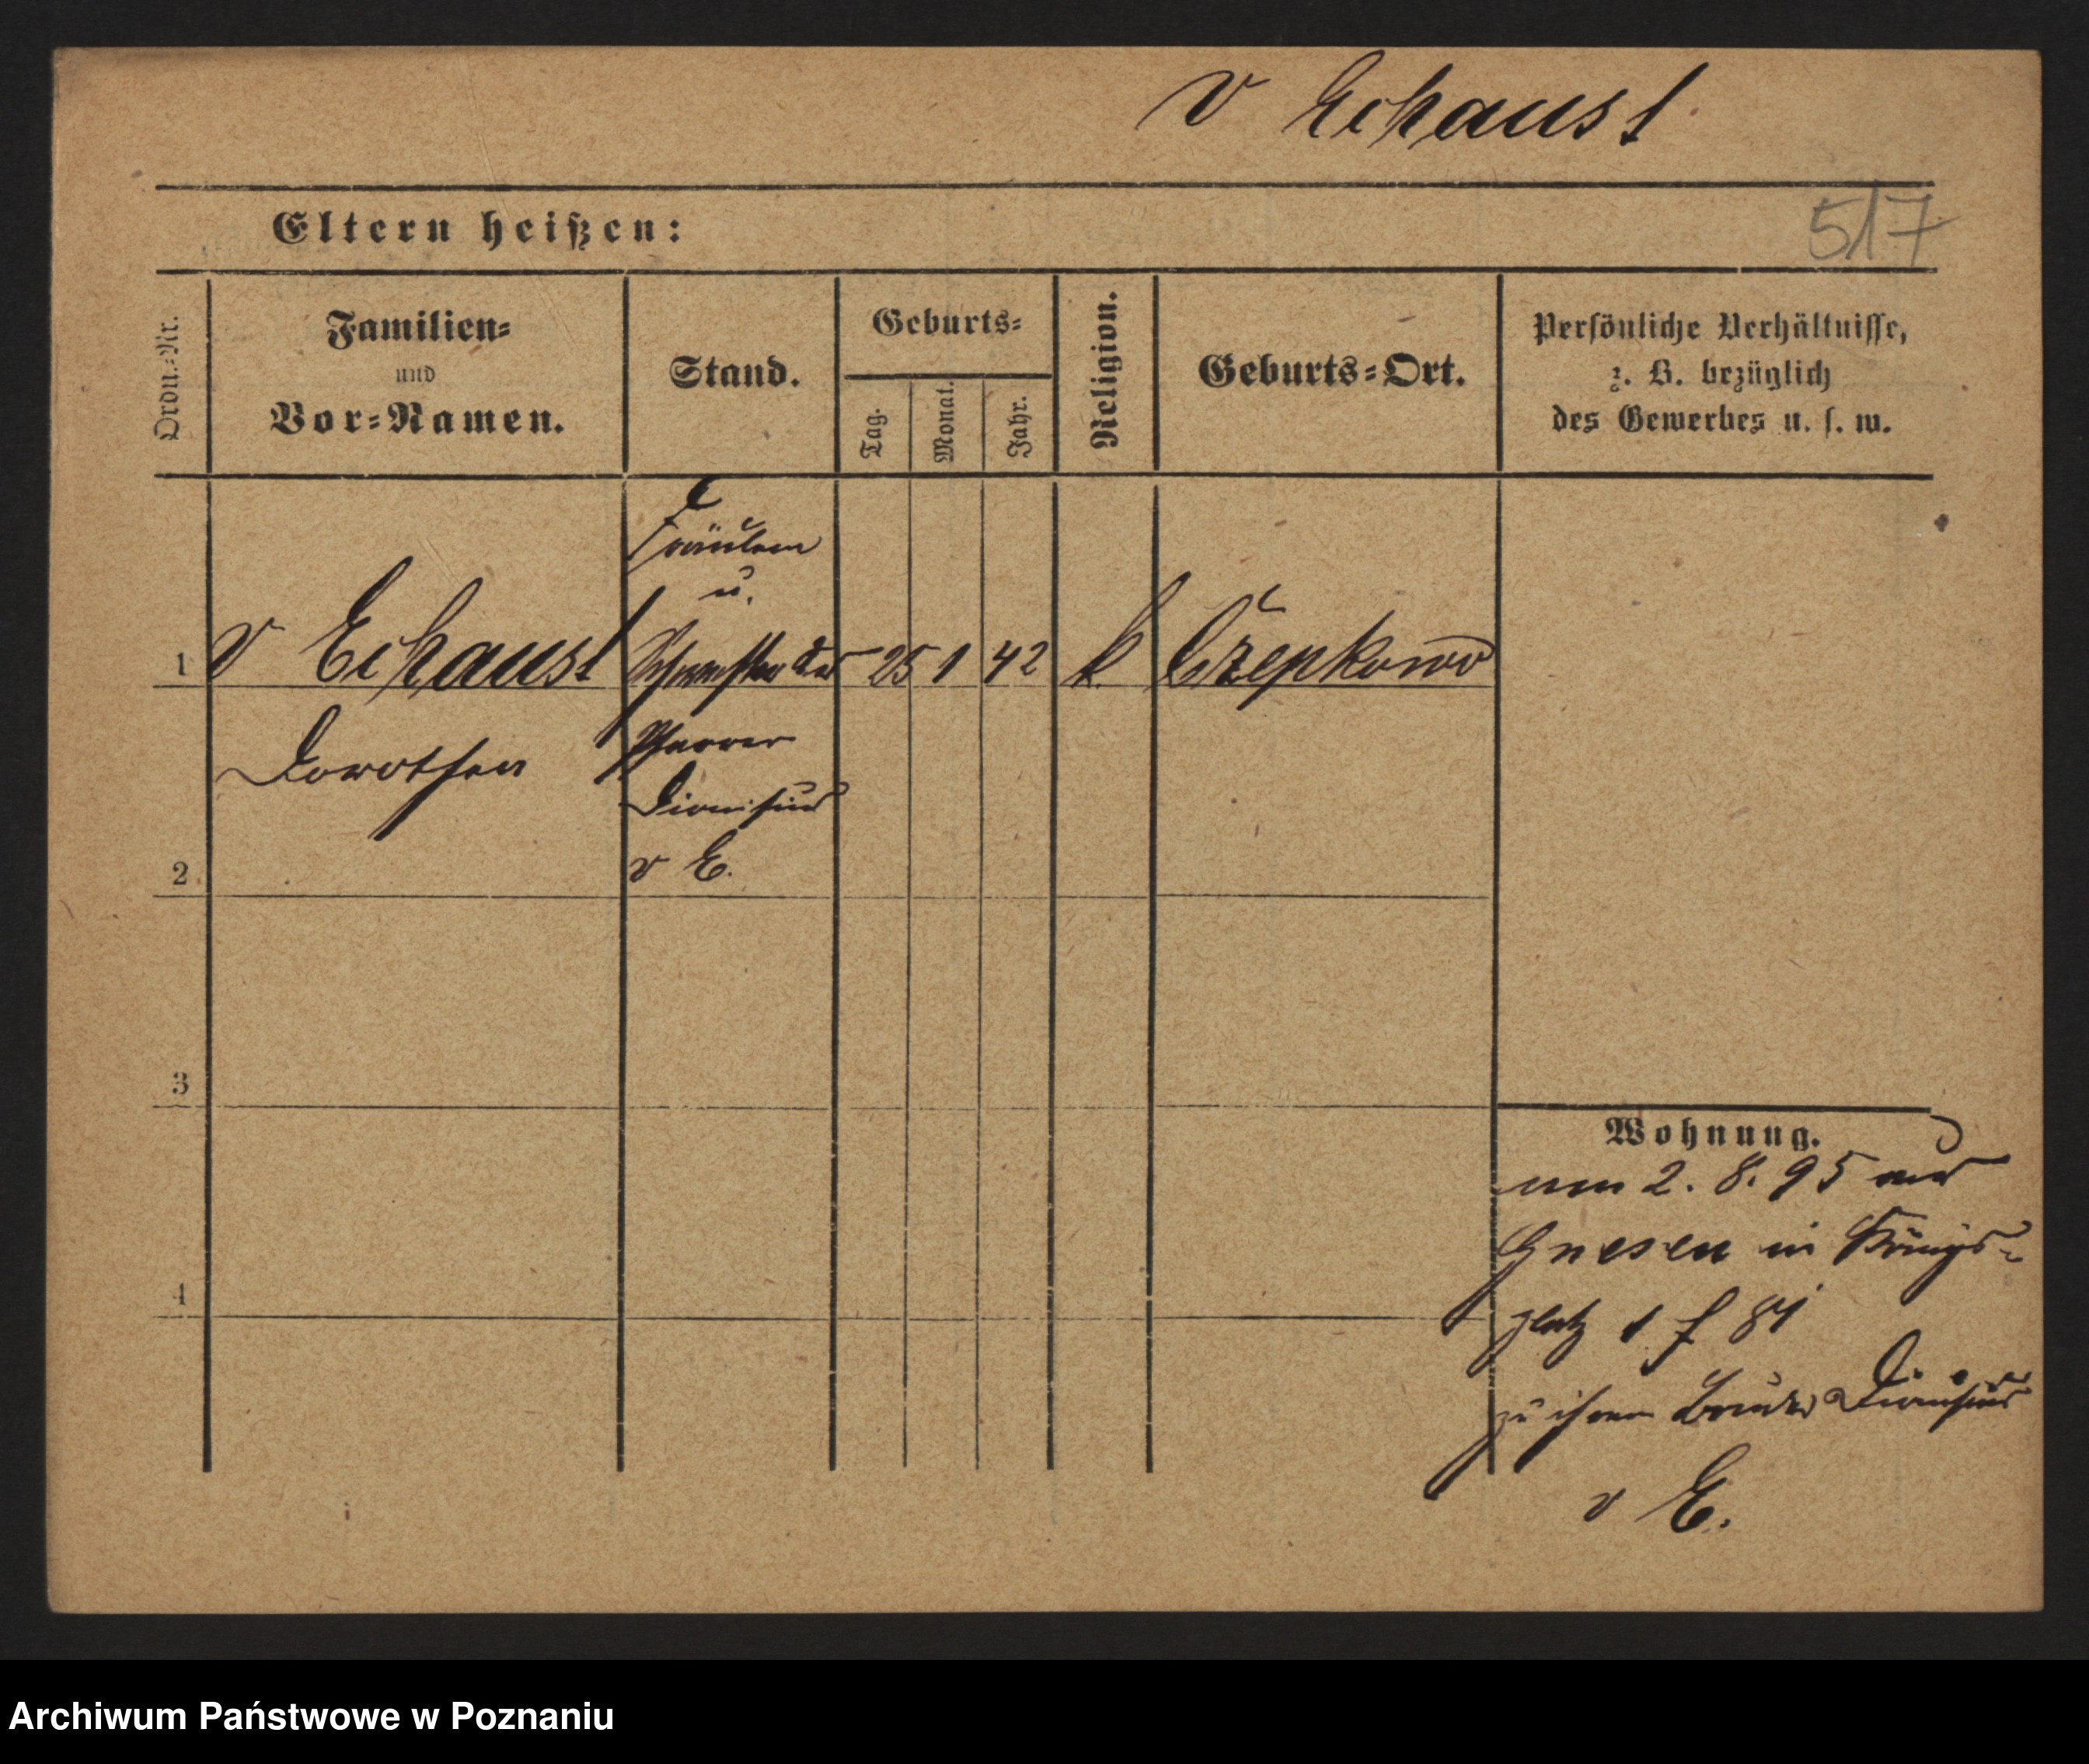 v Echaust
517
Eltern heißen:
Ordn.-Nr.
Familien-
und
Vor-Namen.
Stand.
Geburts-
Tag.
Monat.
Jahr.
Religion.
Geburts-Ort.
Persönliche Verhältnisse,
z. B. bezüglich
des Gewerbes u. s. w.
1
v Echaust
Dorothea
Fräulein
u.
Schwester des
Pfarrer
Dionisius
v E.
25
1
42
k
Czepkowo
2
3
4
Wohnung.
2. 8. 95 aus
Gnesen in Königs-
platz 1 f 84
zu ihrem Bruder Dionisius
v E.
Archiwum Państwowe w Poznaniu